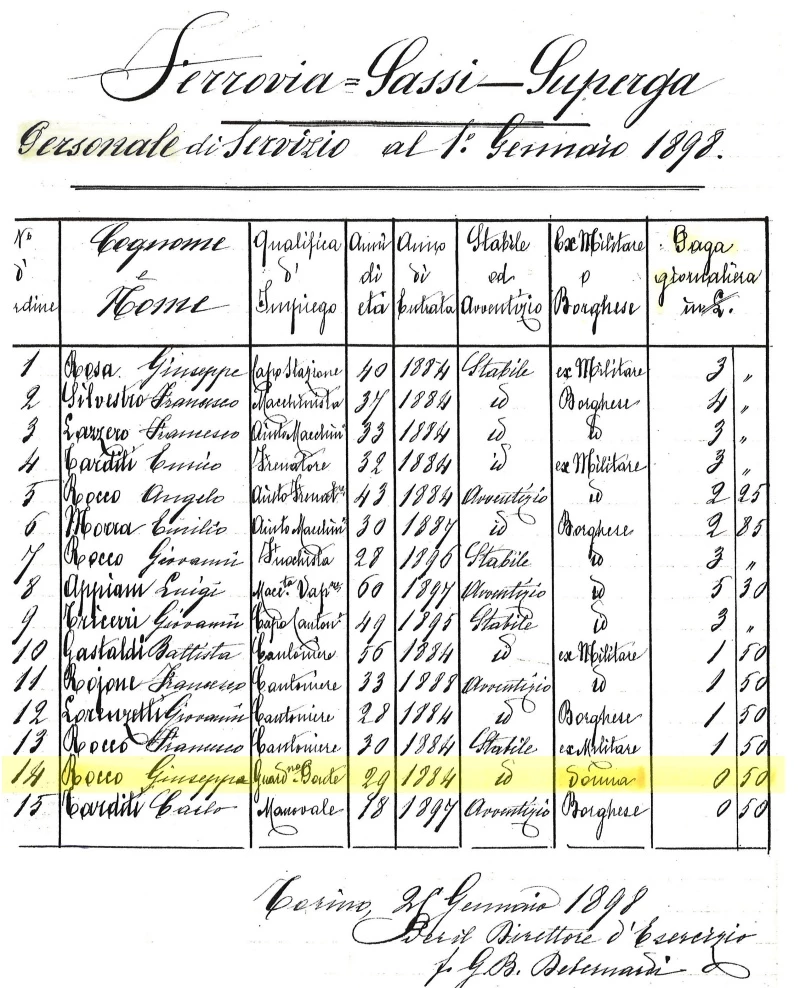 Ferrovia=Sassi—Superga
Personale di Servizio al 1º Gennaio 1898.
Nº d' rdine Cognome e Nome Qualifica d' Impiego Anni di età Anno di Entrata Stabile od Avventizio Ex Militare o Borghese Paga giornaliera in £.
1 Rosa Giuseppe Capo Stazione 40 1884 Stabile ex Militare 3 "
2 Silvestro Francesco Macchinista 37 1884 id Borghese 4 "
3 Lazzero Francesco Aiuto Macchini 33 1884 id id 3 "
4 Tarditi Enrico Frenatore 32 1884 id ex Militare 3 "
5 Rocco Angelo Aiuto Frenatre 43 1884 Avventizio id 2 25
6 Morra Emilio Aiuto Macchini 30 1887 id Borghese 2 85
7 Rocco Giovanni Fuochista 28 1896 Stabile id 3 "
8 Appiani Luigi Maccta Vapre 60 1897 Avventizio id 5 30
9 Tricerri Giovanni Capo Cantoni 49 1895 Stabile id 3 "
10 Gastaldi Battista Cantoniere 56 1884 id ex Militare 1 50
11 Rojone Francesco Cantoniere 33 1888 Avventizio id 1 50
12 Lorenzetti Giovanni Cantoniere 28 1884 id Borghese 1 50
13 Rocco Francesco Cantoniere 30 1884 Stabile ex Militare 1 50
14 Rocco Giuseppa Guardno 29 1884 id donna 0 50
15 Tarditi Carlo Manovale 18 1897 Avventizio Borghese 0 50
Torino, Gennaio 1898
Per il Direttore d'Esercizio
f. G.B. Debernardi